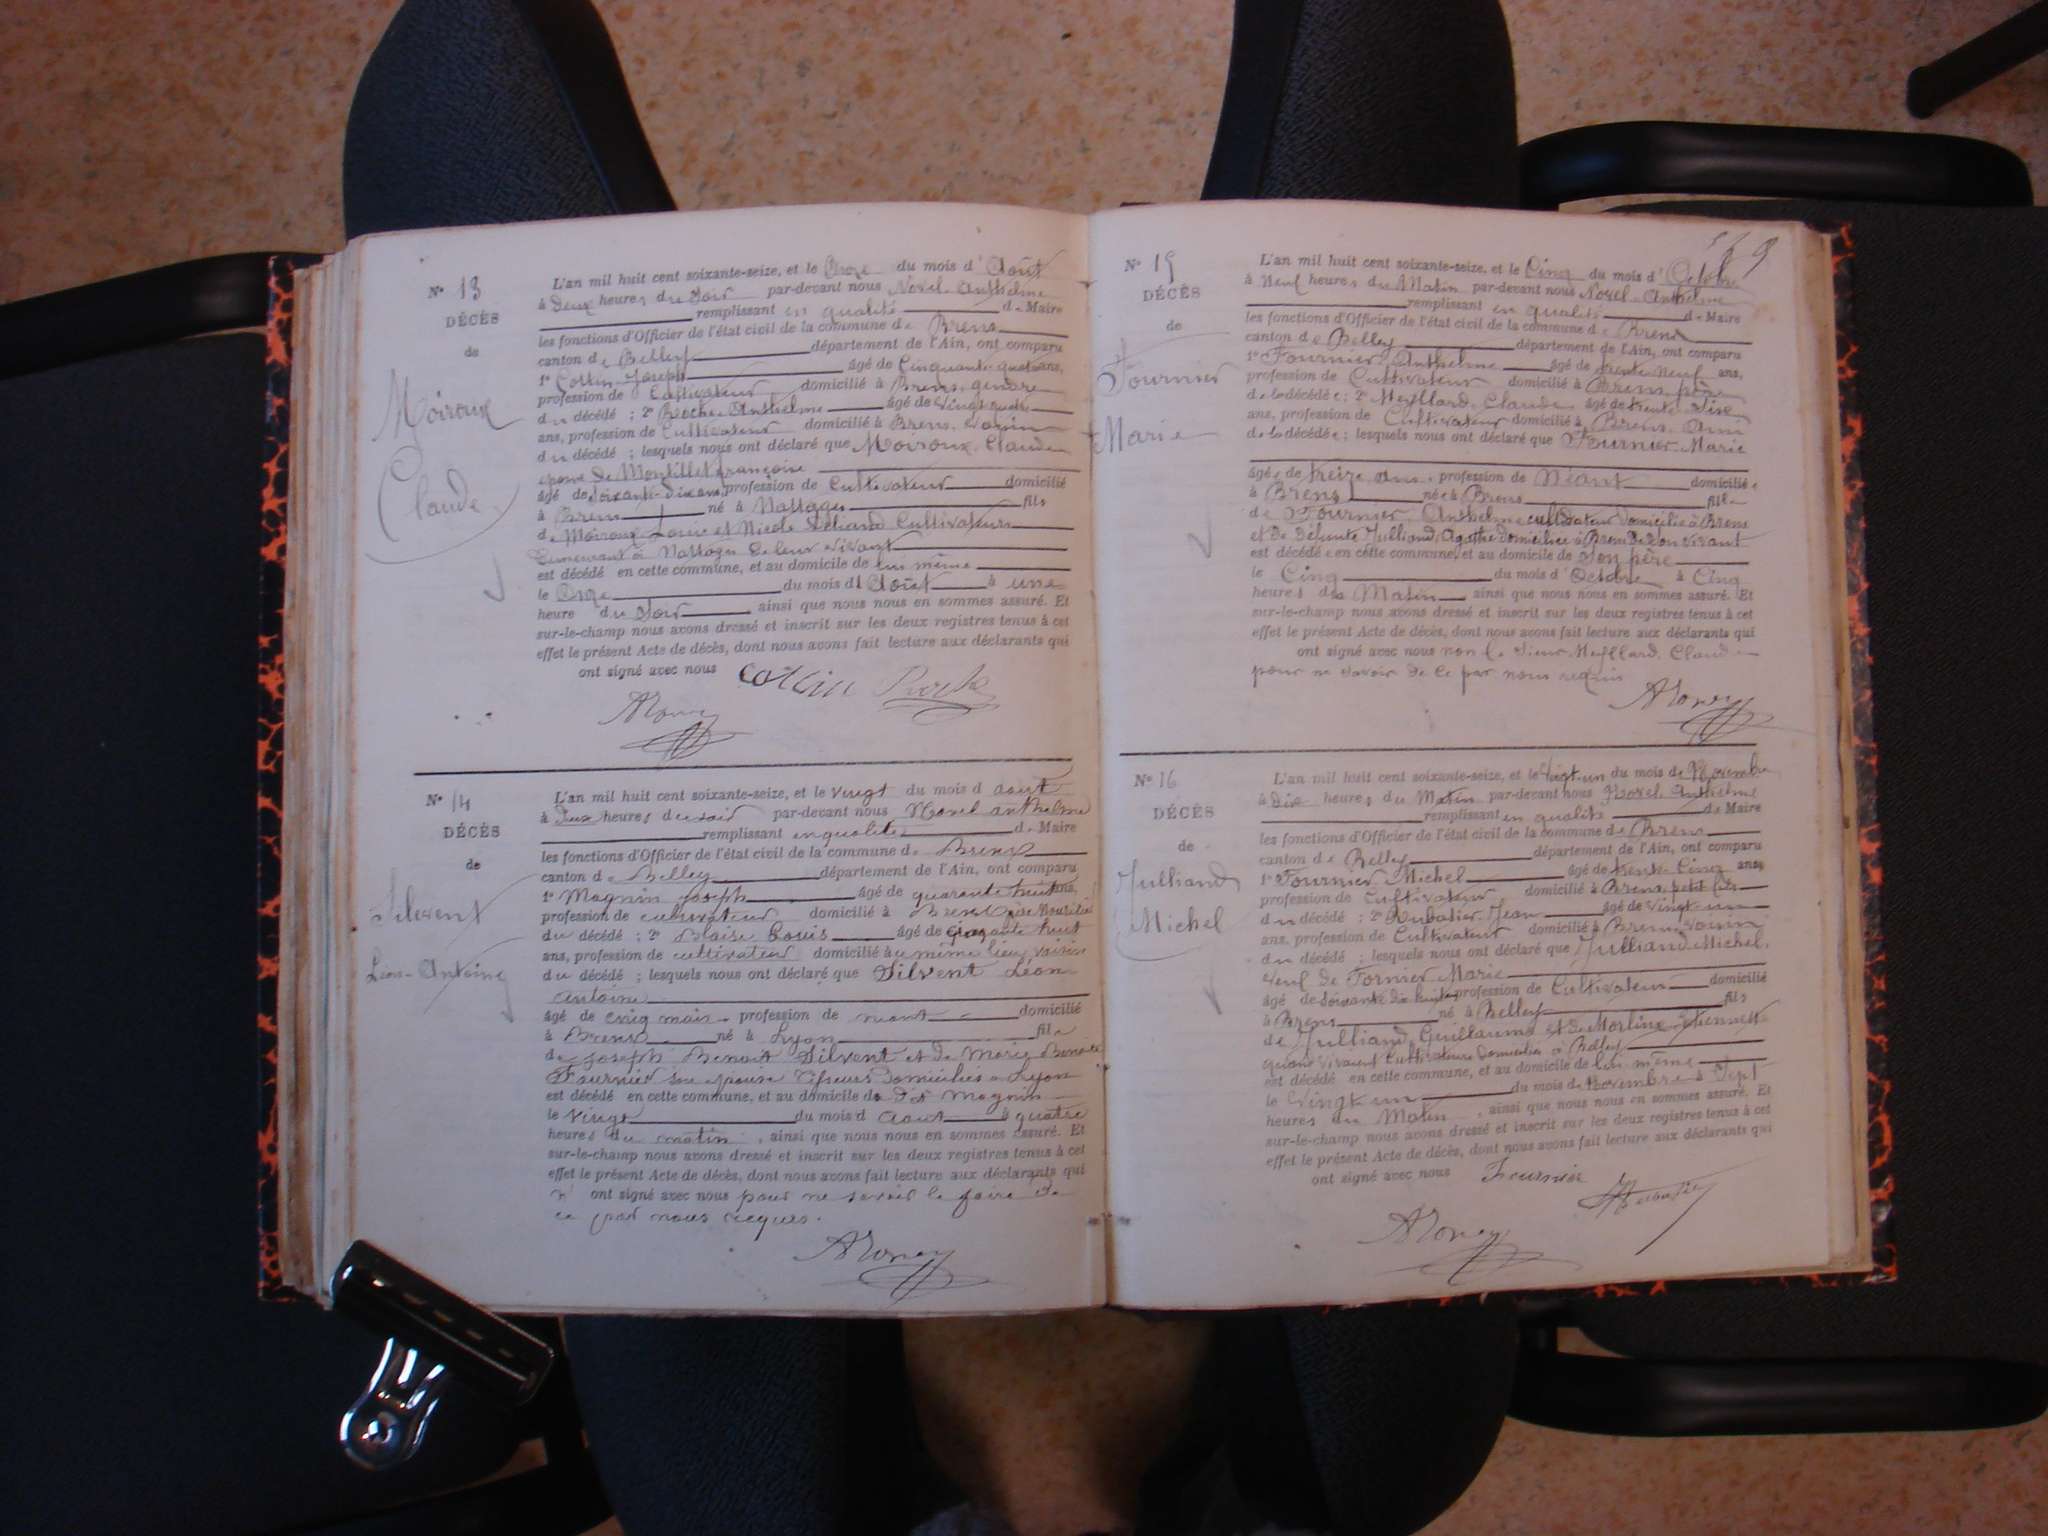 N° 13
DÉCÈS
de
Moiroux
Claude
L'an mil huit cent soixante-seize, et le Onze du mois d' Août
à deux heures du Soir par-devant nous Anthelme
remplissant en qualité de Maire
les fonctions d'Officier de l'état civil de la commune de Brens
canton de Belley département de l'Ain, ont comparu
1° Cottin Joseph âgé de Cinquante quatre ans,
profession de Cultivateur domicilié à Brens, gendre
du décédé ; 2° Roche Anthelme âgé de vingt quatre
ans, profession de Cultivateur domicilié à Brens, Voisin
du décédé ; lesquels nous ont déclaré que Moiroux Claude
époux de Montillet françoise
âgé de soixante-dix ans, profession de Cultivateur domicilié
à Brens né à Nattages fils
de Moiroux Louis et Nicole Cultivateurs
demeurant à Nattages de leur vivant
est décédé en cette commune, et au domicile de lui même
le Onze du mois d' Août à une
heure du Soir, ainsi que nous nous en sommes assuré. Et
sur-le-champ nous avons dressé et inscrit sur les deux registres tenus à cet
effet le présent Acte de décès, dont nous avons fait lecture aux déclarants qui
ont signé avec nous
Cottin Roche
N° 14
DÉCÈS
de
Silvent
Léon-Antoine
L'an mil huit cent soixante-seize, et le vingt du mois d aout
à deux heures du soir par-devant nous anthelme
remplissant en qualité de Maire
les fonctions d'Officier de l'état civil de la commune de Brens
canton de Belley département de l'Ain, ont comparu
1° Magnin joseph âgé de quarante huit ans,
profession de cultivateur domicilié à Brens, père Nourricier
du décédé ; 2° Blaise Louis âgé de quarante huit
ans, profession de cultivateur domicilié au même lieu, voisin
du décédé ; lesquels nous ont déclaré que Silvent Léon
antoine
âgé de cinq mois, profession de néant domicilié
à Brens né à Lyon fils
de joseph Benoit Silvent et de Marie Benoite
Fournier son épouse domiciliés à Lyon
est décédé en cette commune, et au domicile de dit magnin
le vingt du mois d aout à quatre
heures du matin, ainsi que nous nous en sommes assuré. Et
sur-le-champ nous avons dressé et inscrit sur les deux registres tenus à cet
effet le présent Acte de décès, dont nous avons fait lecture aux déclarants qui
n' ont signé avec nous pour ne savoir le faire de
ce par nous requis.
N° 15
DÉCÈS
de
Fournier
Marie
L'an mil huit cent soixante-seize, et le Cinq du mois d' Octobre
à Neuf heures du Matin par-devant nous Anthelme
remplissant en qualité de Maire
les fonctions d'Officier de l'état civil de la commune de Brens
canton de Belley département de l'Ain, ont comparu
1° Fournier Anthelme âgé de trente Neuf ans,
profession de Cultivateur domicilié à Brens, père
de la décédée ; 2° Claude âgé de trente
ans, profession de Cultivateur domicilié à Brens, Ami
de la décédée ; lesquels nous ont déclaré que Fournier Marie
âgée de treize ans, profession de Néant domiciliée
à Brens née à Brens fille
de Fournier Anthelme cultivateur domicilié à Brens
et de défunte Julliand, Agathe domiciliée à Brens de son vivant
est décédée en cette commune, et au domicile de Son père
le Cinq du mois d' Octobre à Cinq
heures du Matin, ainsi que nous nous en sommes assuré. Et
sur-le-champ nous avons dressé et inscrit sur les deux registres tenus à cet
effet le présent Acte de décès, dont nous avons fait lecture aux déclarants qui
ont signé avec nous non le Sieur Claude
pour ne savoir de ce par nous requis
N° 16
DÉCÈS
de
Julliand
Michel
L'an mil huit cent soixante-seize, et le Vingt-un du mois de Novembre
à dix heures du Matin par-devant nous Anthelme
remplissant en qualité de Maire
les fonctions d'Officier de l'état civil de la commune de Brens
canton de Belley département de l'Ain, ont comparu
1° Fournier Michel âgé de trente Cinq ans,
profession de Cultivateur domicilié à Brens, petit fils
du décédé ; 2° Rubatier Jean âgé de vingt-un
ans, profession de Cultivateur domicilié à Brens, voisin
du décédé ; lesquels nous ont déclaré que Julliand Michel,
veuf de Fornier Marie
âgé de soixante dix huit, profession de Cultivateur domicilié
à Brens né à Belley fils
de Julliand Guillaume et de Etiennette
quand vivaient Cultivateurs domiciliés à Belley
est décédé en cette commune, et au domicile de lui même
le Vingt un du mois de Novembre à Sept
heures du Matin, ainsi que nous nous en sommes assuré. Et
sur-le-champ nous avons dressé et inscrit sur les deux registres tenus à cet
effet le présent Acte de décès, dont nous avons fait lecture aux déclarants qui
ont signé avec nous Fournier